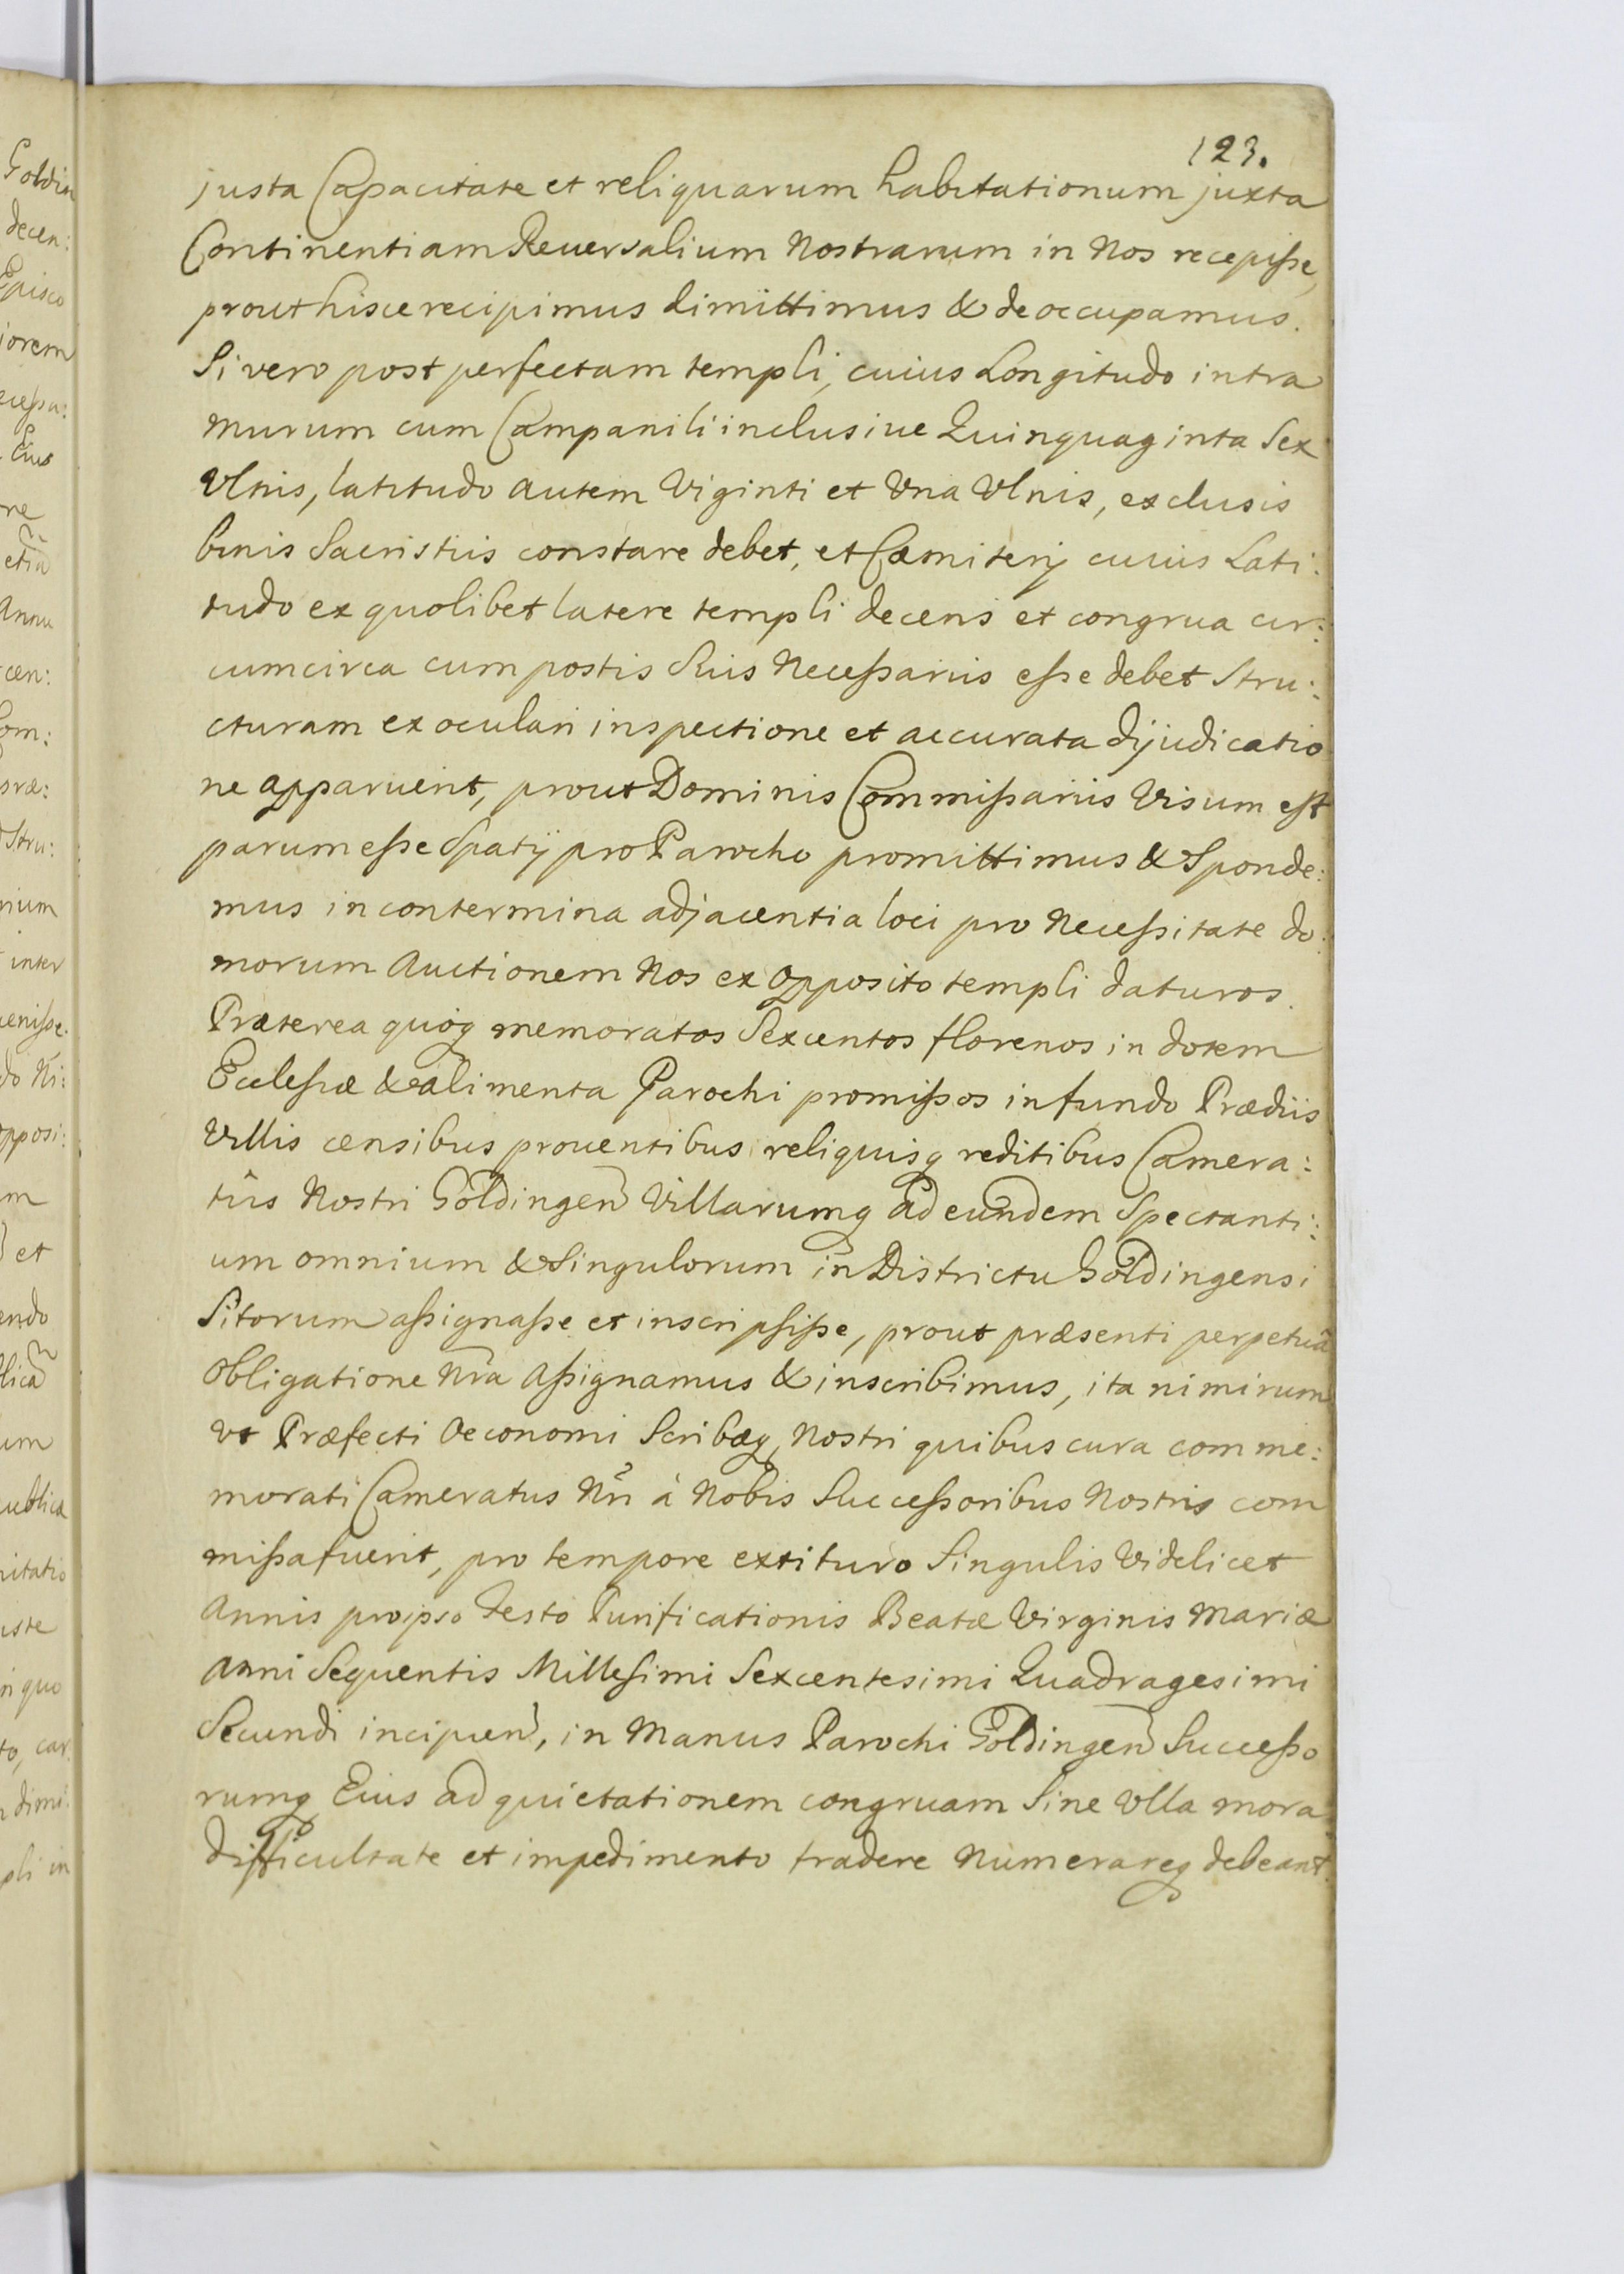 123.
justa Capacitate et reliquarum habitationum juxta
Continentiam Reuersalium Nostrarum in Nos recepisse,
prout hisce recipimus dimittimus & de occupamus.
Si vero post perfectam templi, cuius Longitudo intra
murum cum Campanili inclusiue Quinquaginta Sex
Vlnis, latitudo autem Viginti et Vna Vlnis, exclusis
binis Sacristiis constare debet, et Cæmiterij cuius Lati:
tudo ex quolibet latere templi decens et congrua cir:
cumcirca cum postis Suis Necessariis esse debet Stru:
cturam ex oculari inspectione et accurata dijudicatio
ne apparuerit, prout Dominis Commissariis Visum est
parum esse Spatij pro Parocho promittimus & Sponde:
mus in contermina adjacentia loci pro Necessitate do:
morum Auctionem Nos ex Opposito templi daturos.
Præterea quoq memoratos Sexcentos florenos in dotem
Ecclesiæ & alimenta Parochi promissos in fundo Prædiis
Villis censibus prouentibus reliquisq reditibus Camera:
tûs Nostri Goldingen Villarumq ad eundem Spectanti:
um omnium & Singulorum in Districtu Goldingensi
Sitorum assignasse et inscripsisse, prout præsenti perpetuâ
Obligatione Nrâ Assignamus & inscribimus, ita nimirum
vt Præfecti Oeconomi Scribæq Nostri quibus cura comme:
morati Cameratus Nri à Nobis Successoribus Nostris com
missa fuerit, pro tempore extituro Singulis Videlicet
Annis pro ipso Festo Purificationis Beatæ Virginis Mariæ
Anni Sequentis Millesimi Sexcentesimi Quadragesimi
Secundi incipien, in Manus Parochi Goldingen Successo
rumq Eius ad quietationem congruam Sine Vlla mora
difficultate et impedimento tradere Numerareq debeant